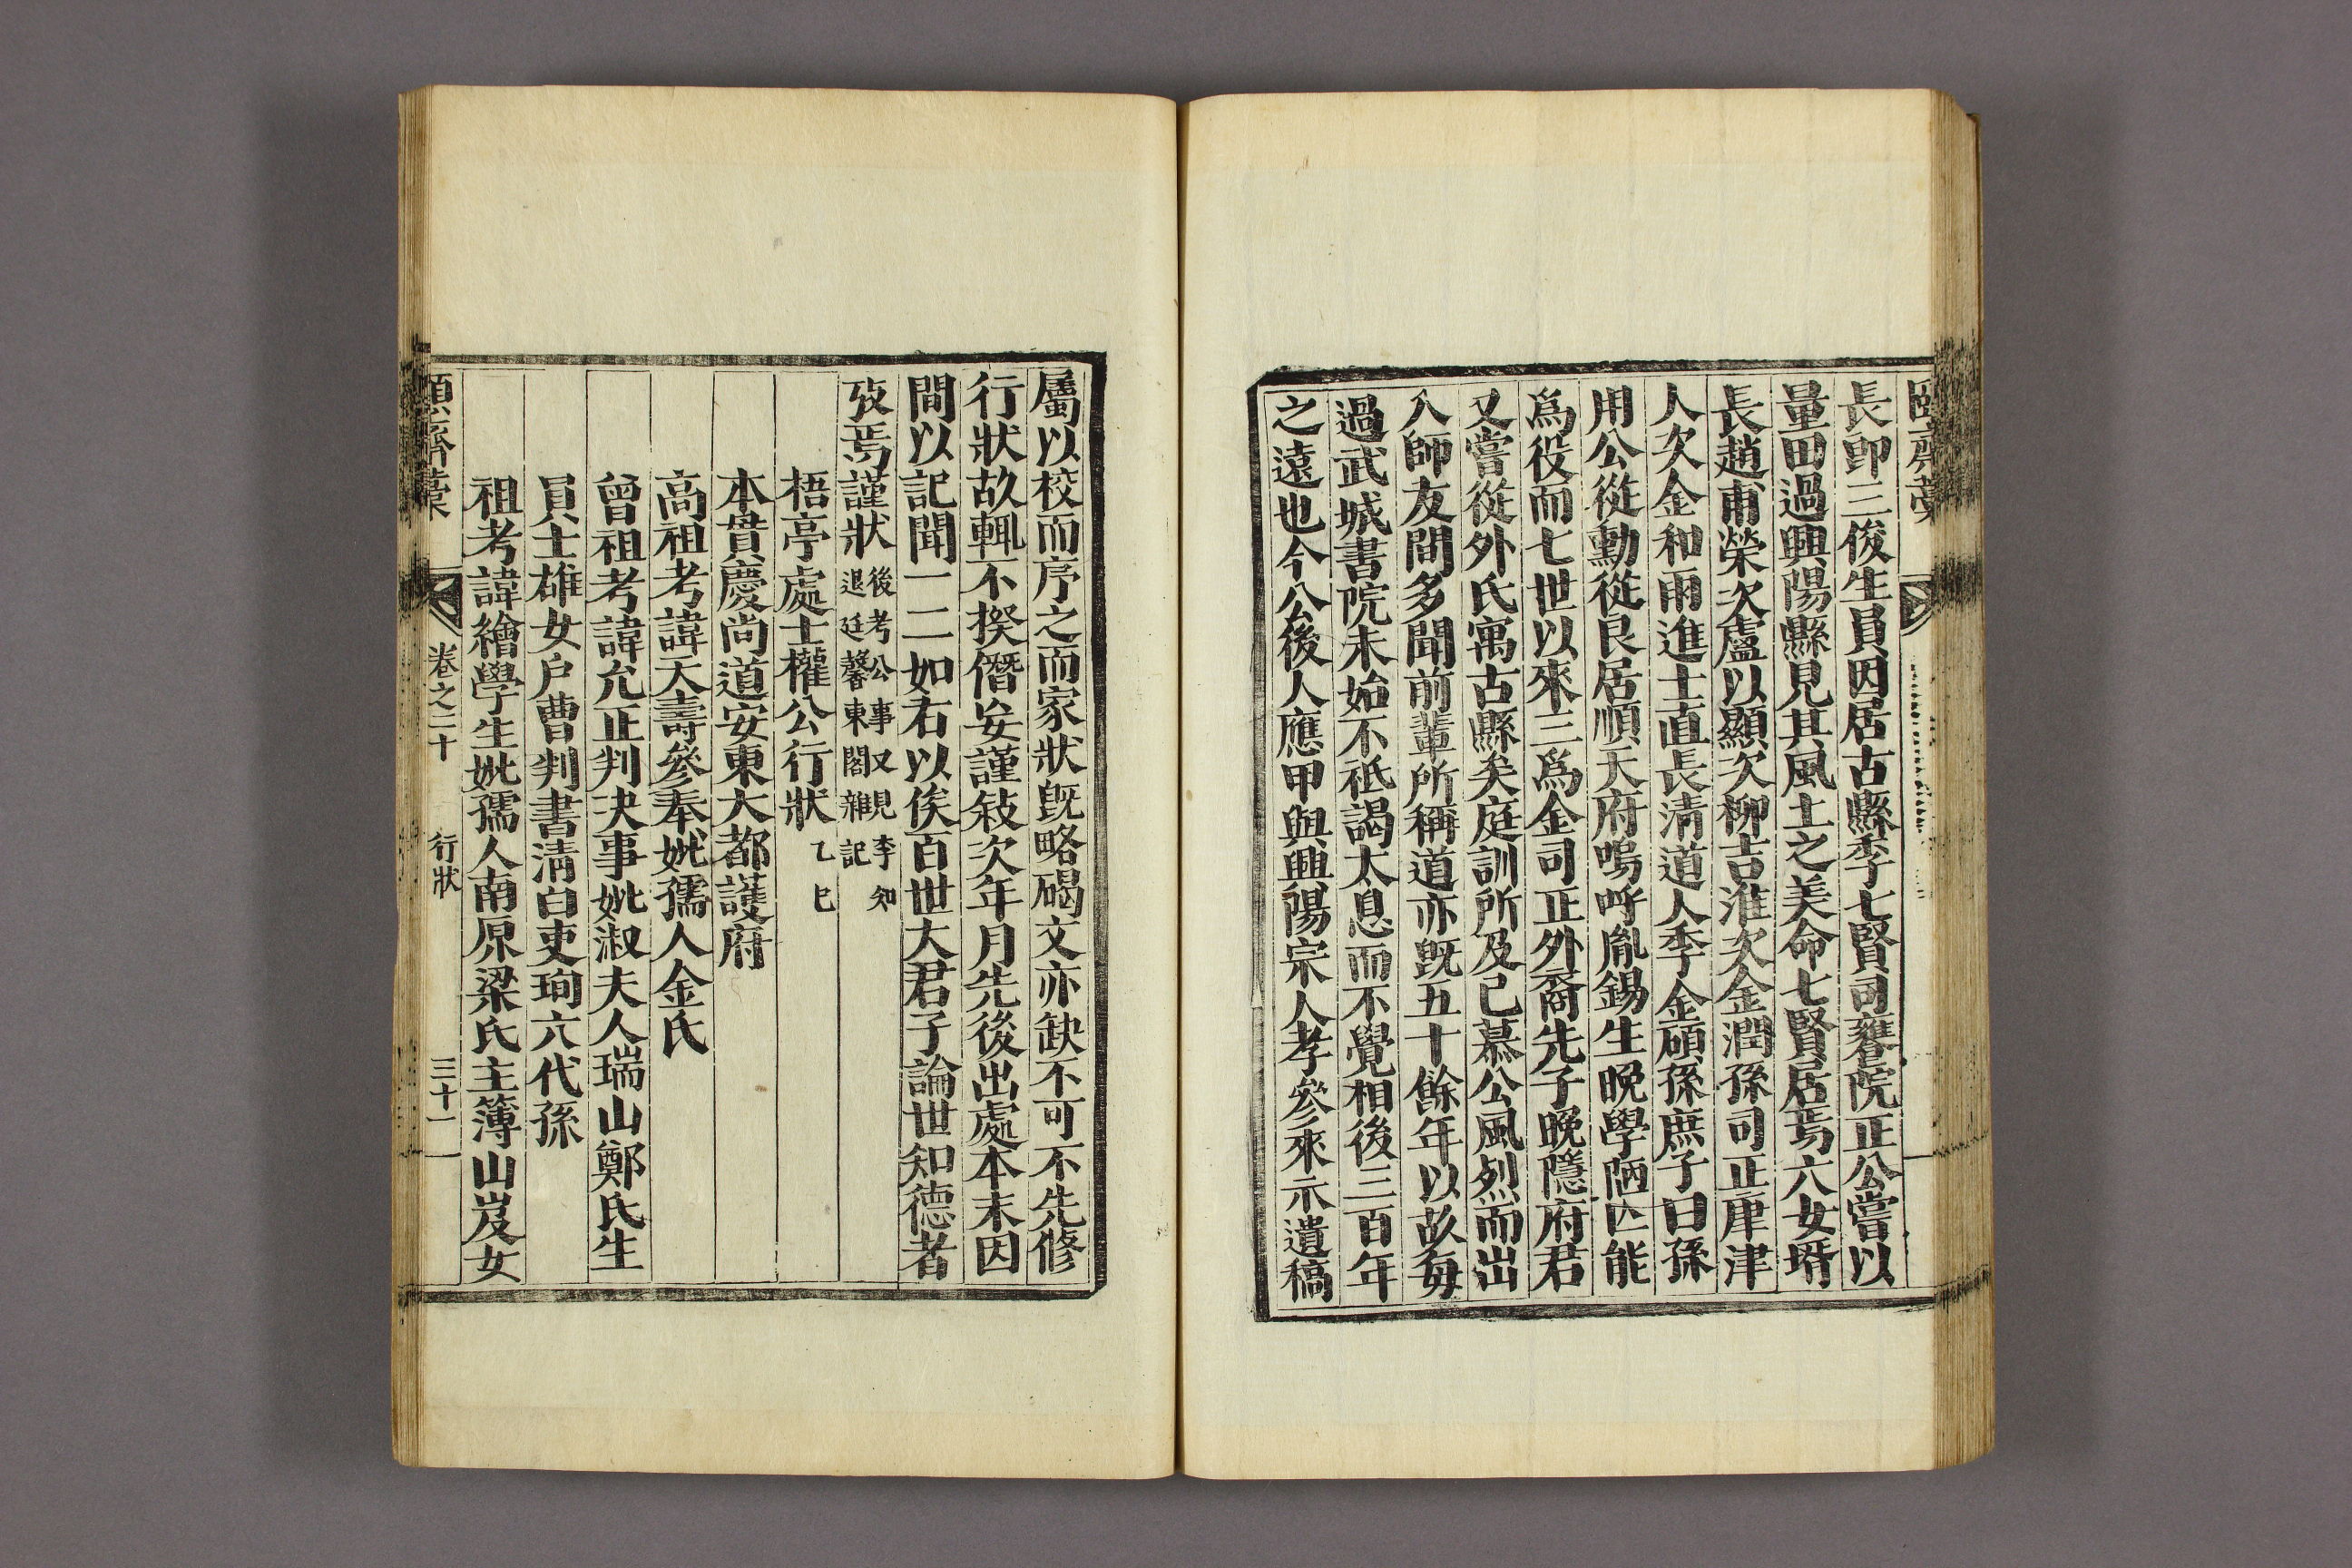 長卽三俊生員因居古縣季七賢司饔院正公嘗以
量田過興陽縣見其風土之美命七賢居焉六女壻
長趙甫榮次盧以顯次柳吉淮次金潤孫司正庫津
人次金和雨進士直長淸道人季金碩孫庶子曰孫
用公從勳從良居順天府嗚呼胤錫生晩學陋𠤎能
爲役而七世以來三爲金司正外裔先子晩隱府君
又嘗從外氏寓古縣矣庭訓所及已慕公風烈而出
入師友間多聞前輩所稱道亦旣五十餘年以故每
過武城書院未始不祇謁太息而不覺相後三百年
之遠也今公後人應甲與興陽宗人孝參來示遺稿
屬以校而序之而家狀旣略碣文亦缺不可不先修
行狀故輒不揆僭妄謹敍次年月先後出處本末因
間以記聞一二如右以俟百世大君子論世知德者
攷焉謹狀 後考公事又見李知退廷馨東閣雜記
梧亭處士權公行狀 乙巳
本貫慶尙道安東大都護府
高祖考諱天壽參奉妣孺人金氏
曾祖考諱允正判決事妣淑夫人瑞山鄭氏生
員士雄女戶曹判書淸白吏珣六代孫
祖考諱繪學生妣孺人南原梁氏主簿山岌女
頤齋藁 卷之二十 行狀 三十一